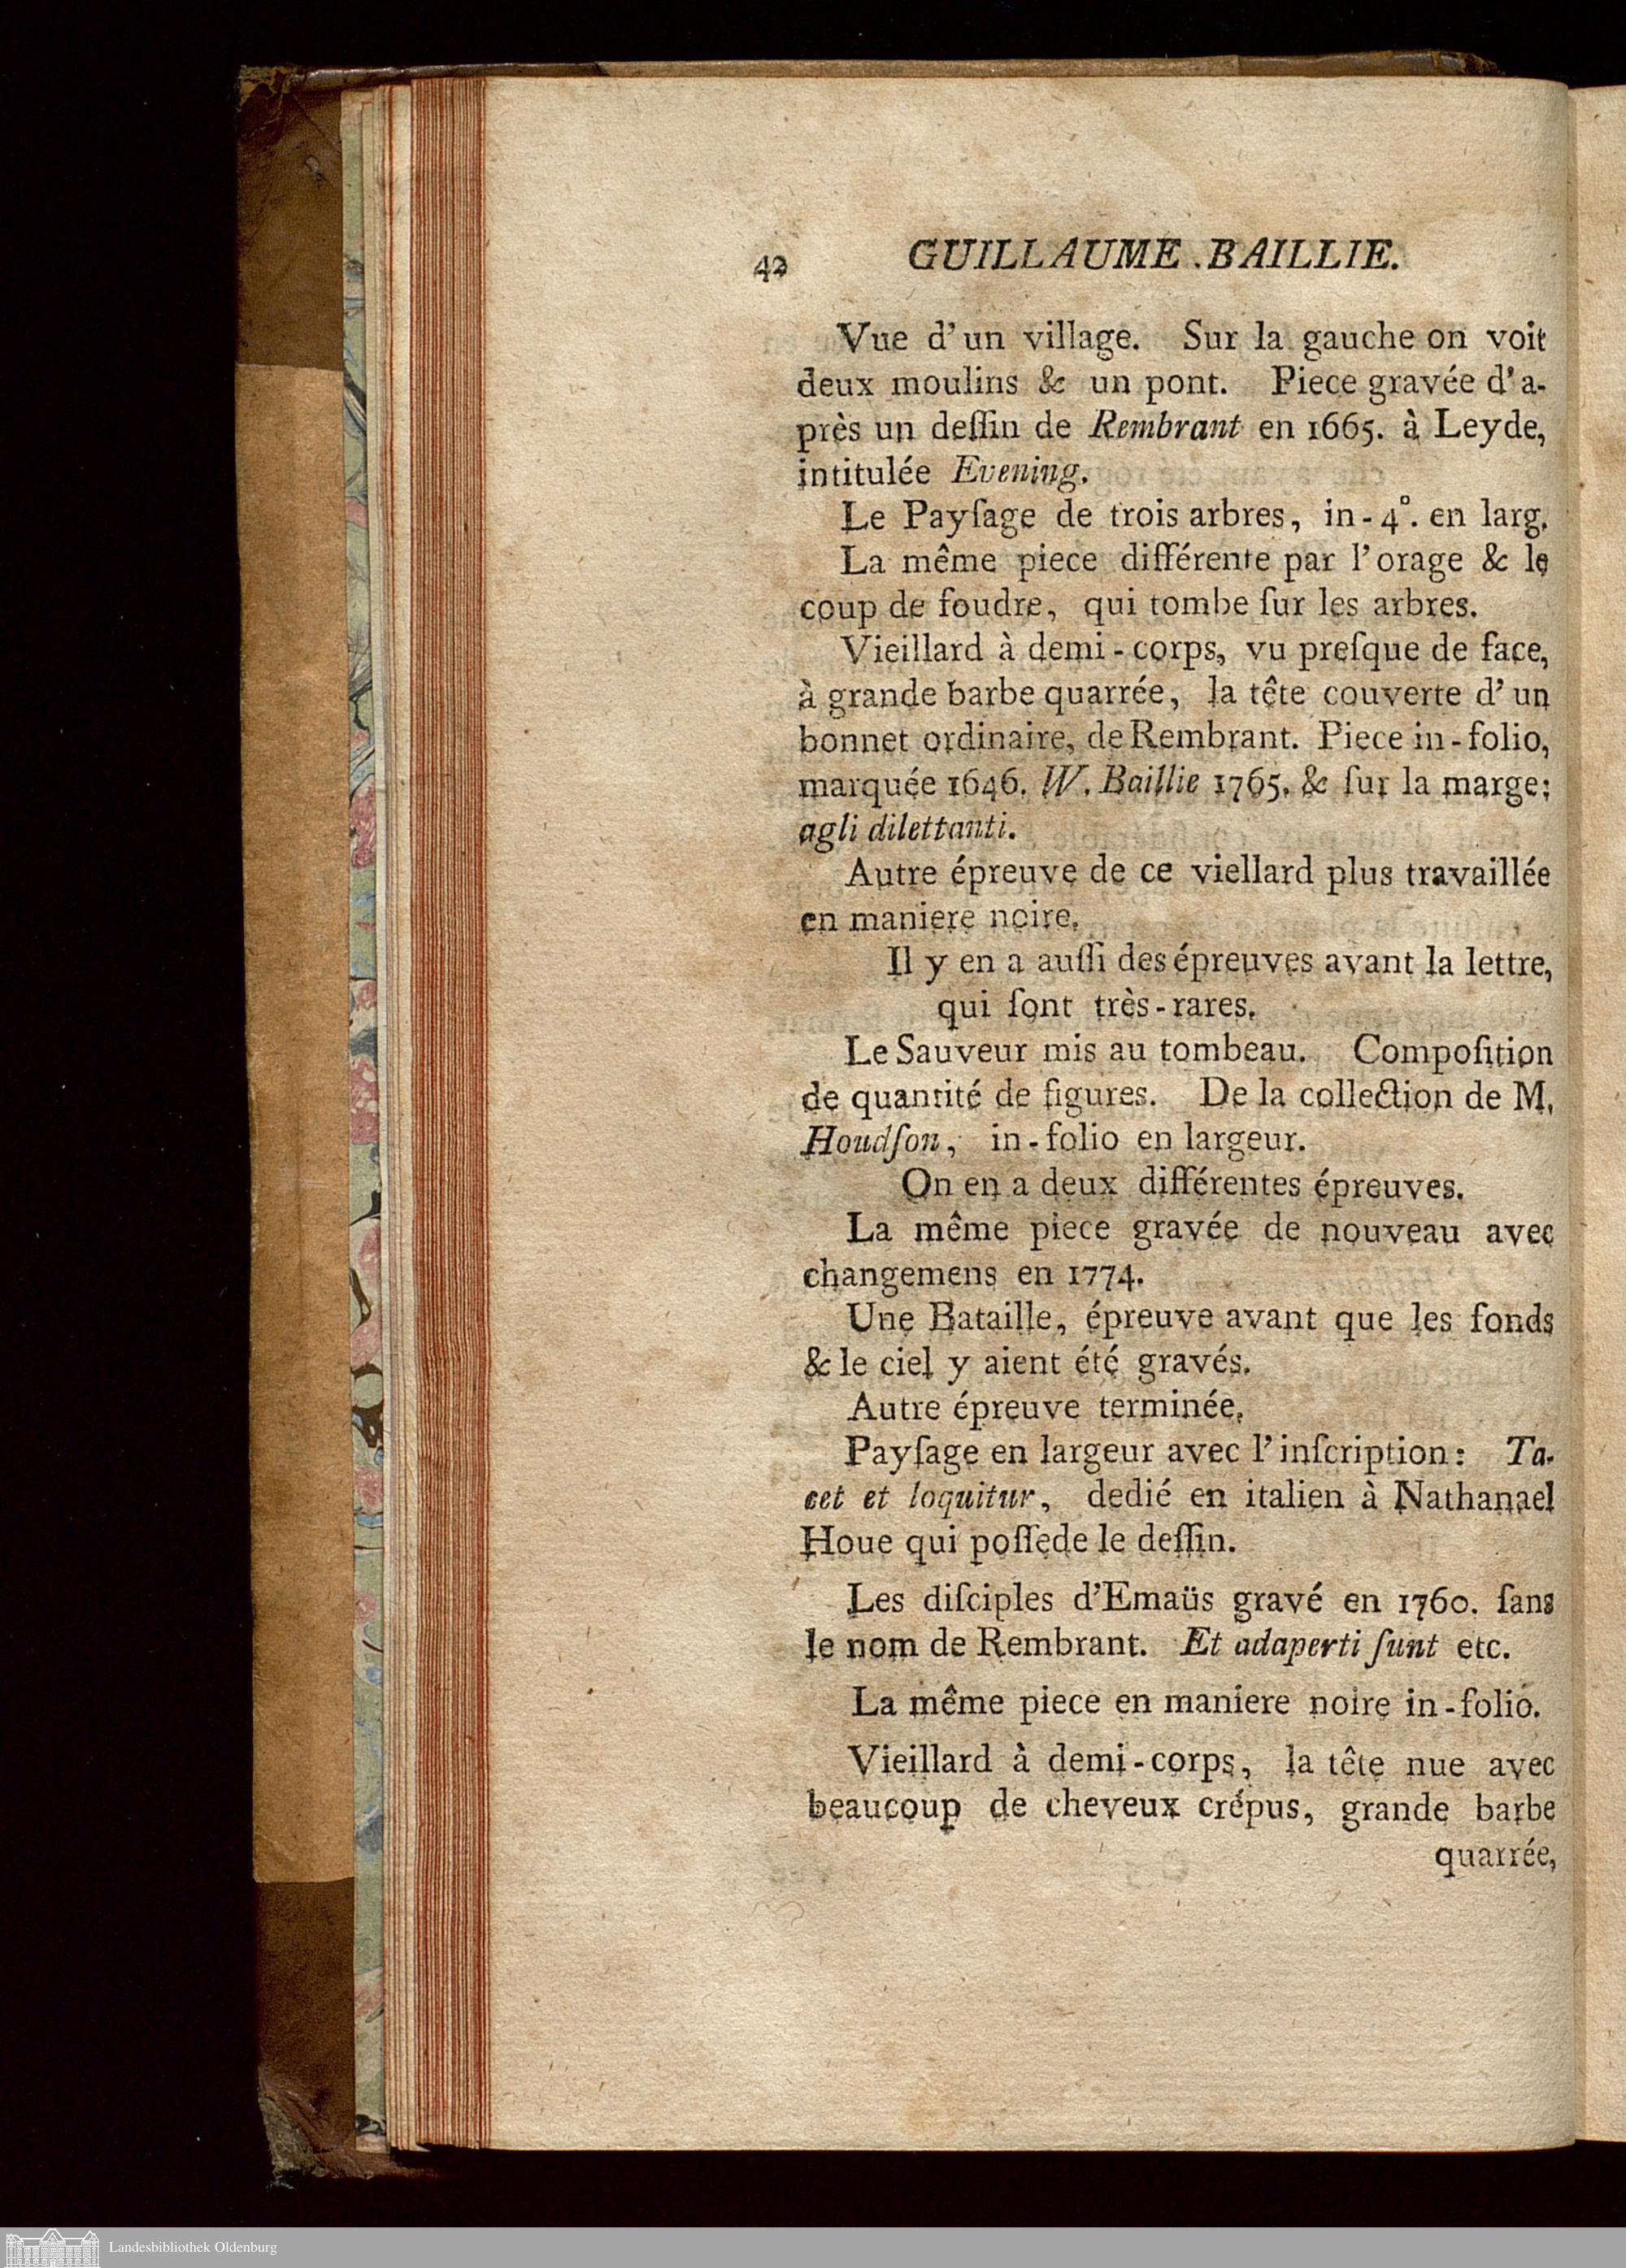 42 GUILLAUME . BAILLIE.
Vue d'un village. Sur la gauche on voit
deux moulins & un pont. Piece gravée d'a-
près un deſſin de Rembrant en 1665. à Leyde,
intitulée Evening.
Le Payſage de trois arbres, in-4°. en larg.
La même piece différente par l'orage & le
coup de foudre, qui tombe ſur les arbres.
Vieillard à demi-corps, vu preſque de face,
à grande barbe quarrée, la tête couverte d'un
bonnet ordinaire, de Rembrant. Piece in-folio,
marquée 1646. W. Baillie 1765. & ſur la marge;
agli dilettanti.
Autre épreuve de ce viellard plus travaillée
en maniere noire.
Il y en a auſſi des épreuves avant la lettre,
qui ſont très-rares.
Le Sauveur mis au tombeau. Compoſition
de quantité de figures. De la collection de M.
Houdſon, in-folio en largeur.
On en a deux différentes épreuves.
La même piece gravée de nouveau avec
changemens en 1774.
Une Bataille, épreuve avant que les fonds
& le ciel y aient été gravés.
Autre épreuve terminée.
Payſage en largeur avec l'inſcription: Ta-
cet et loquitur, dedié en italien à Nathanael
Houe qui poſſede le deſſin.
Les diſciples d'Emaüs gravé en 1760. ſans
le nom de Rembrant. Et adaperti ſunt etc.
La même piece en maniere noire in-folio.
Vieillard à demi-corps, la tête nue avec
beaucoup de cheveux crépus, grande barbe
quarrée,
Landesbibliothek Oldenburg